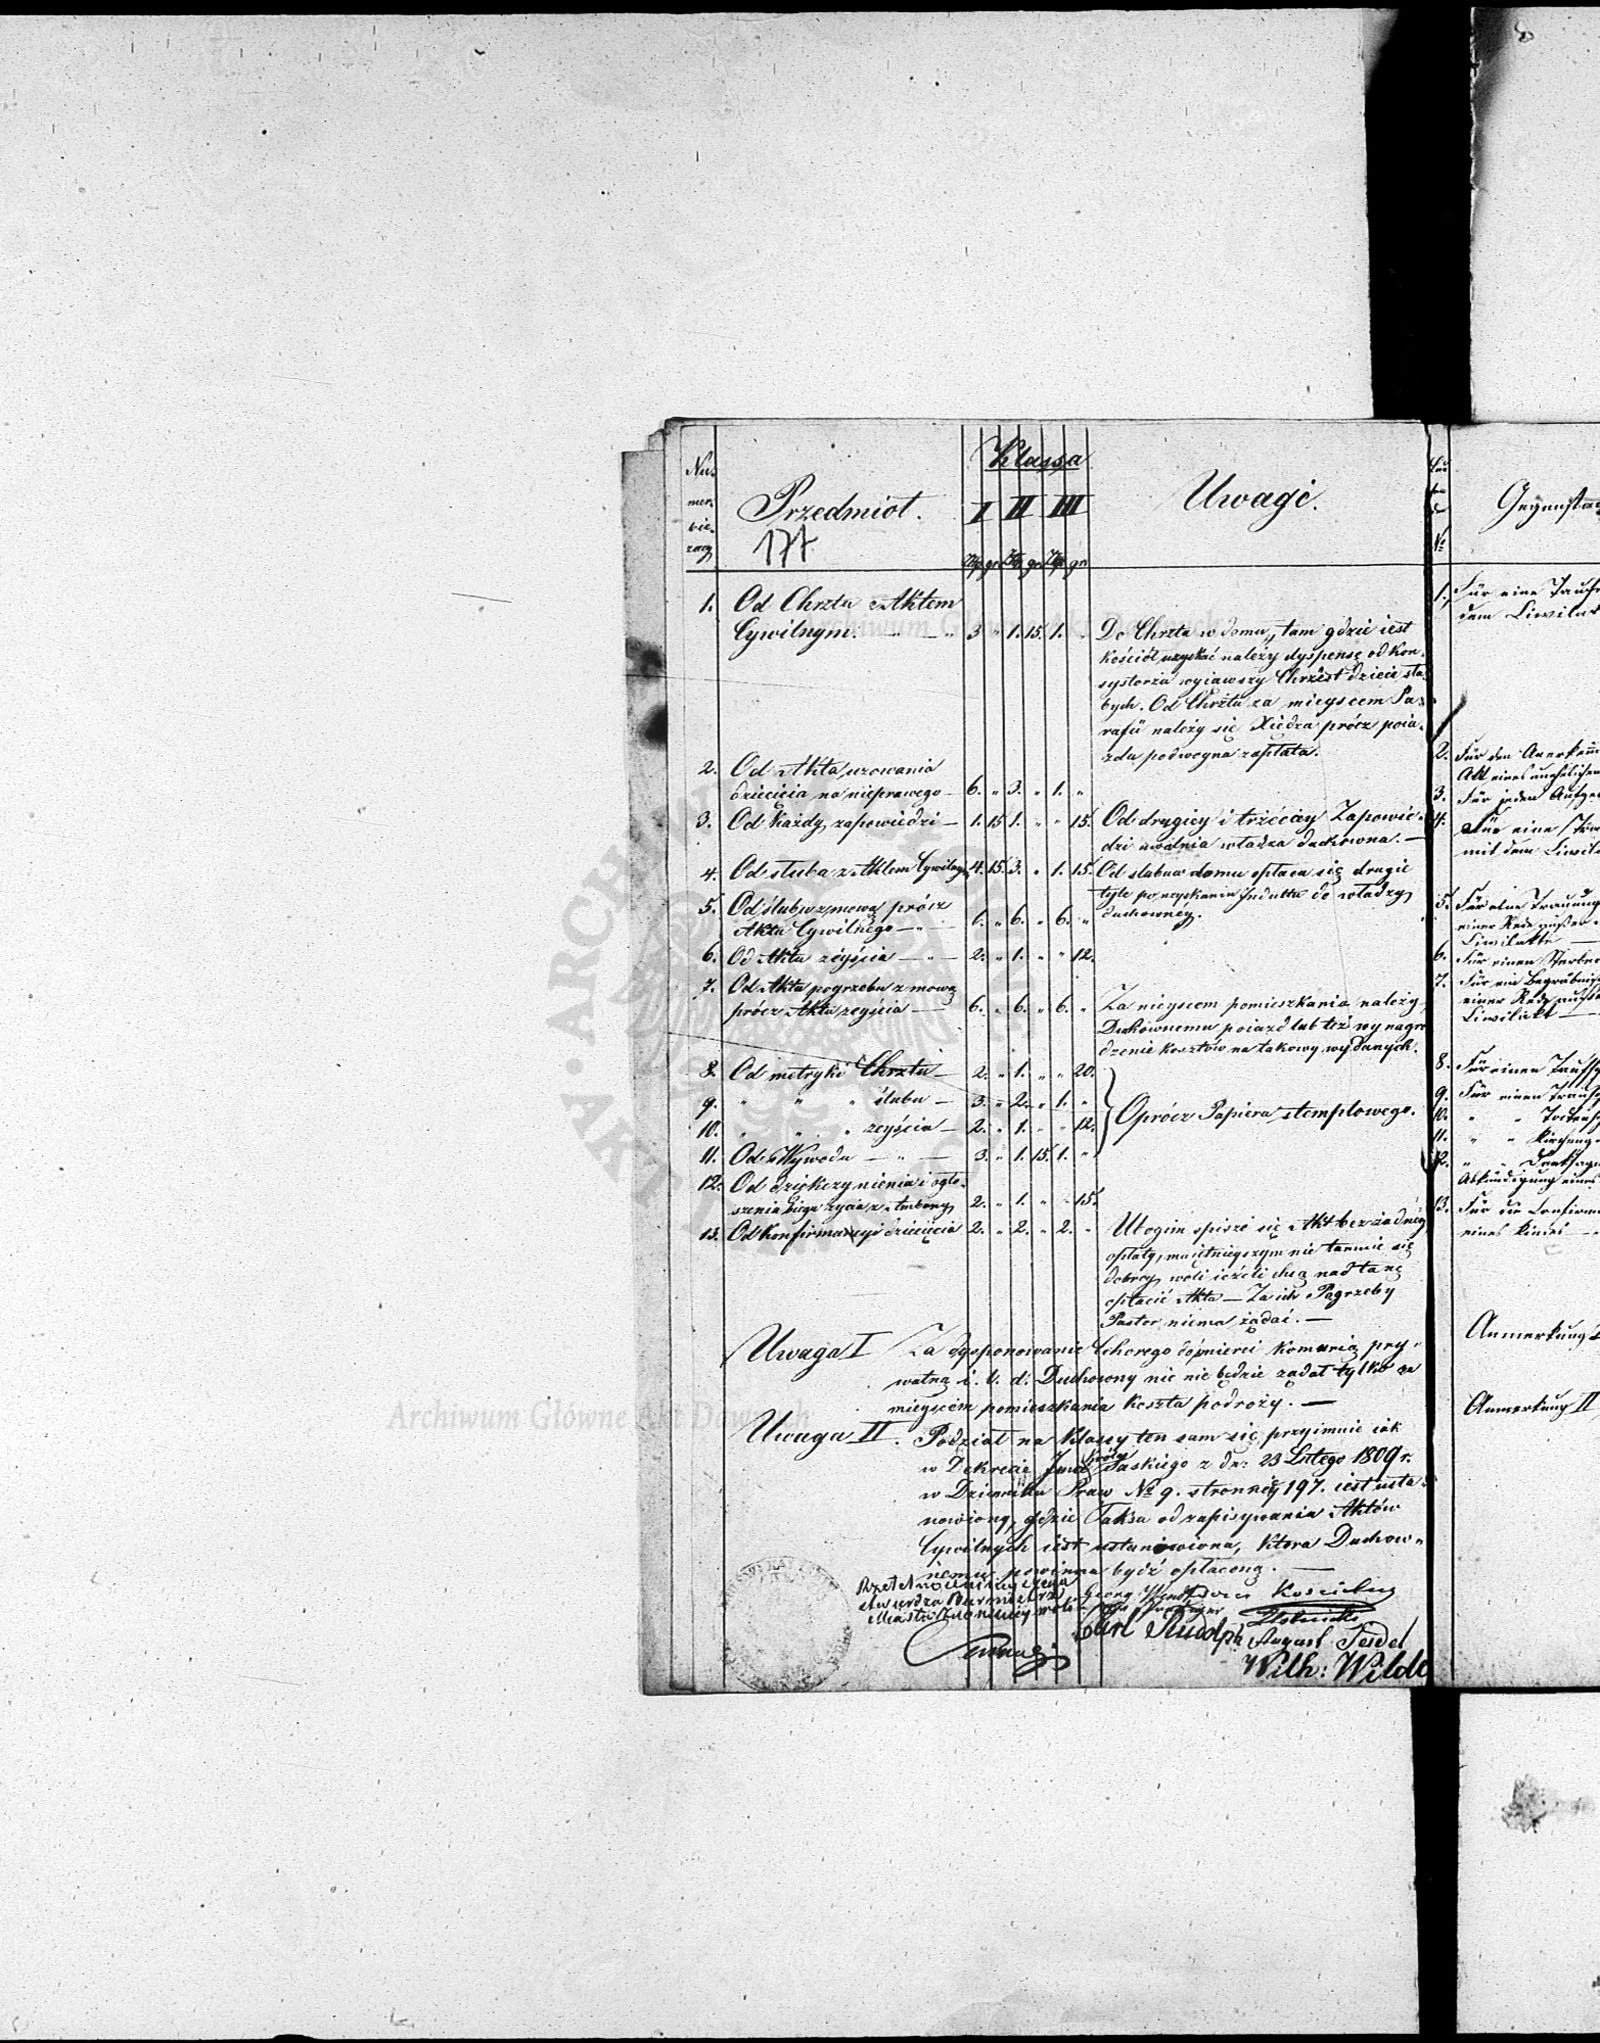 Nu-
mer
bie-
żący
Przedmiot.
177
Klassa
I II III
Złp gr Złp gr Złp gr
Uwagi.
1. Od Chrztu z Aktem
Cywilnym — " — " 3 " 1. 15. 1. "
Do Chrztu w domu, tam gdzie iest
kościół, uzyskać należy dyspensę od Kon-
systorza wyiąwszy Chrzest dzieci sła-
bych. Od Chrztu za mieyscem Pa-
rafii należy się Xiędzu prócz poia-
zdu podwoyna zapłata.
2. Od Aktu uznania
dziecięcia na nieprawego — 6. " 3. " 1. "
3. Od każdy zapowiedzi — 1. 15 1. " " 15.
Od drugiey i trzeciey Zapowie-
dzi uwalnia władza duchowna. —
4. Od ślubu z Aktem Cywilnym 4. 15. 3. " 1. 15.
Od ślubu w domu opłaca się drugie
tyle po uzyskaniu Indultu do władzy
duchownéy.
5. Od ślubu z mową prócz
Aktu Cywilnego — " — 6. " 6. " 6. "
6. Od Aktu zéyścia — " — 2. " 1. " " 12.
7. Od Aktu pogrzebu z mową
prócz Aktu zeyścia — 6. " 6. " 6. "
Za mieyscem pomieszkania należy
Duchownemu poiazd lub téż wynagro
dzenie kosztów na takowy wydanych.
8. Od metryki Chrztu — 2. " 1. " " 20.
9. " " " ślubu — 3. " 2. " 1. "
10. " " " zeyścia — 2. " 1. " " 12.
Oprócz Papieru stemplowego.
11. Od Wywodu — " — 3. " 1. 15. 1. "
12. Od dziękczynienia i ogło-
szenia biegu życia z Ambony 2. " 1. " " 15.
13. Od Konfirmacyi dziecięcia 2. " 2. " 2. "
Ubogim spisze się Akt bez żadnéy
opłaty, maiętnieyszym nie tamuie się
dobréy woli ieżeli chcą nad taxę
opłacić Akta — Za ich Pogrzeby
Pastor niema żądać. —
Uwaga I Za dysponowanie Chorego do śmierci Komunią pry-
watną i. t. d. Duchowny nic nie będzie żądał tylko za
mieyscem pomieszkania koszta podróży. —
Uwaga II. Podział na klassy ten sam się przyimuie iak
w Dekrecie Króla Saskiego z dn: 23 Lutego 1809 r.
w Dzienniku Praw No 9. stronnicy 197. iest usta-
nowiony, gdzie Taksa od zapisywania Aktów
Cywilnych iest ustanowiona, która Duchow-
nemu powinna bydź opłaconą. —
Carl Rudolph
August
Wilh: Wilde
No
Gegenstan
1. Für eine Taufe
dem Civilak
2. Für den Anerkenn
Akt eines unehelichen
3. Für jeden Aufge
4. Für eine Trau
mit dem Civil
5. Für eine Trauung
einer Rede außer
Civilakte —
6. Für einen Sterbe
7. Für ein Begräbniß
einer Rede außer
Civilakt —
8. Für einen Taufsch
9. Für einen Trausch
10. " " Todtensch
11. " " Kirchengang
12. " " Danksagung
Abkündigung eines
13. Für die Confirma
eines Kindes —
Anmerkung I
Anmerkung II
Archiwum Główne Akt Dawnych